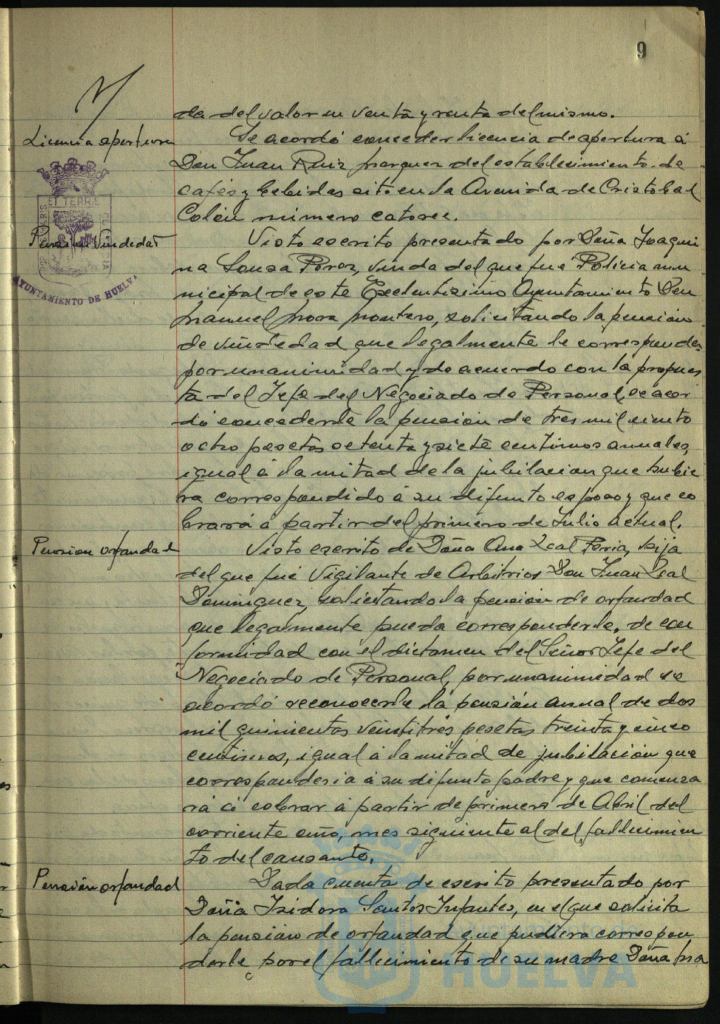 9
da del valor en venta y renta del mismo.
Licencia apertura
Se acordó conceder licencia de apertura á
Don Juan Ruiz Marquez del establecimiento de
cafés y bebidas sito en la Avenida de Cristobal
Colón número catorce.
Pensión Viudedad
Visto escrito presentado por Doña Joaqui
na Sousa Perez, viuda del que fué Policia mu
nicipal de este Excelentisimo Ayuntamiento Don
Manuel Mora Montero, solicitando la pensión
de viudedad que legalmente le corresponde,
por unanimidad y de acuerdo con la propues
ta del Jefe del Negociado de Personal, se acor
dó concederle la pensión de tres mil ciento
ocho pesetas setenta y siete centimos anuales,
igual á la mitad de la jubilacion que hubie
ra correspondido á su difunto esposo y que co
brará á partir del primero de Julio actual.
Pension orfandad
Visto escrito de Doña Ana Leal Feria, hija
del que fué Vigilante de Arbitrios Don Juan Leal
Dominguez, solicitando la pensión de orfandad
que legalmente pueda corresponderle, de con
formidad con el dictamen del Señor Jefe del
Negociado de Personal, por unanimidad se
acordó reconocerle la pensión anual de dos
mil quinientas veintitrés pesetas treinta y cinco
centimos, igual á la mitad de jubilación que
corresponderia á su difunto padre y que comenza
rá á cobrar á partir de primero de Abril del
corriente año, mes siguiente al del fallecimien
to del causante.
Pensión orfandad
Dada cuenta de escrito presentado por
Doña Isidora Santos Infantes, en el que solicita
la pensión de orfandad que pudiera correspon
derle por el fallecimiento de su madre Doña
ET TERRE
AYUNTAMIENTO DE HUELVA
HUELVA